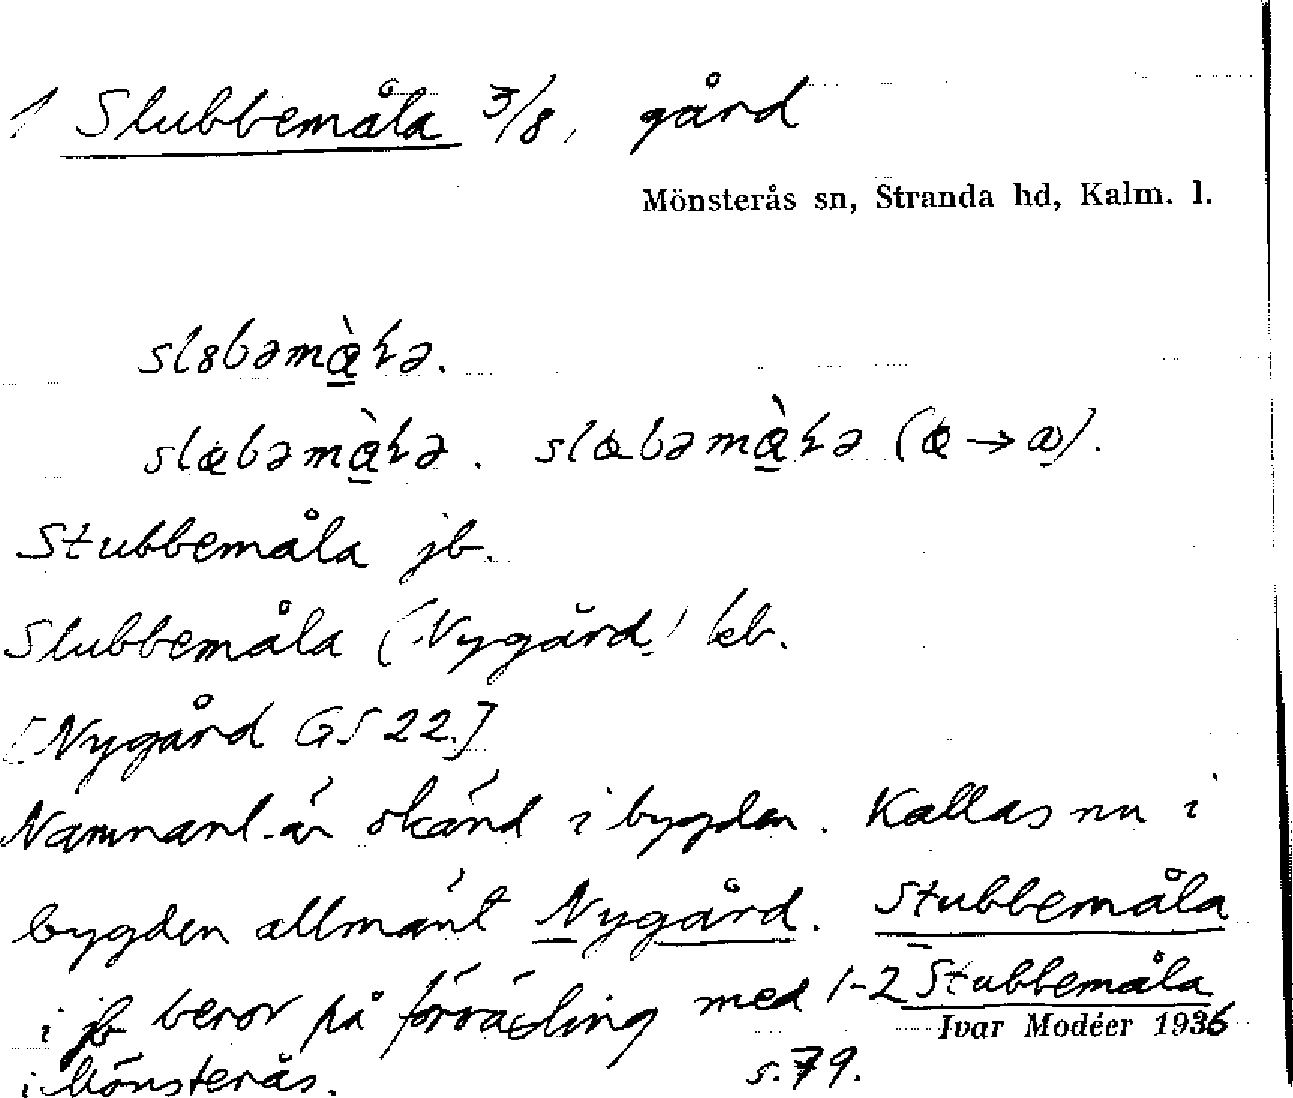 1 Slubbemåla 3/8, gård
Mönsterås sn, Stranda hd, Kalm. l.
Stubbemåla jb.
Slubbemåla (Nygård) kb.
[Nygård GS 22.]
Namnet är okänd i bygden. Kallas nu i
bygden allmänt Nygård. Stubbemåla
i jb beror på förväxling med 1-2 Stubbemåla
i Mönsterås.
Ivar Modéer 1936
s. 79.